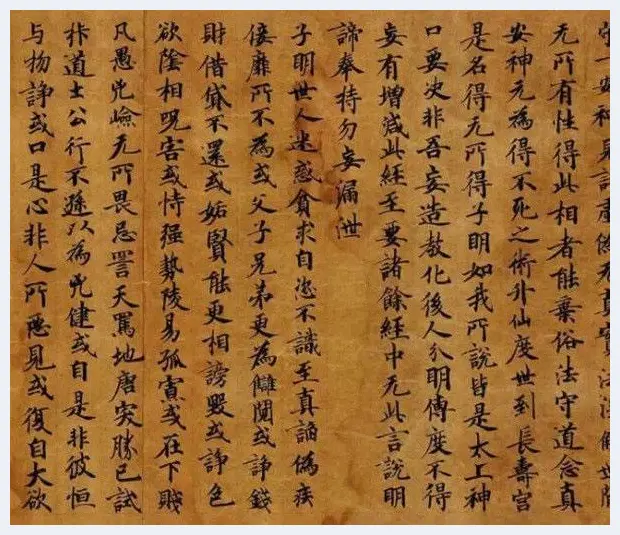 无所有性得此相者能棄俗法守道念真
安神无為得不死之術升仙度世到長壽宮
是名得无所得子明如我所說皆是太上神
口要决非吾妄造教化後人分明傳度不得
妄有增減此經至要諸餘經中无此言說明
諦奉持勿妄漏泄
子明世人迷惑貪求自恣不識至真諂偽疾
佞靡所不為或父子兄弟更為讎鬩或諍錢
財借貸不還或妬賢能更相謗毀或諍色
欲陰相呪害或恃强勢陵易孤寡或在下賤
凡愚兇嶮无所畏忌詈天罵地唐突勝己試
道士公行不遜以為兇健或自是非彼恒
与物諍或口是心非人所惡見或復自大欲